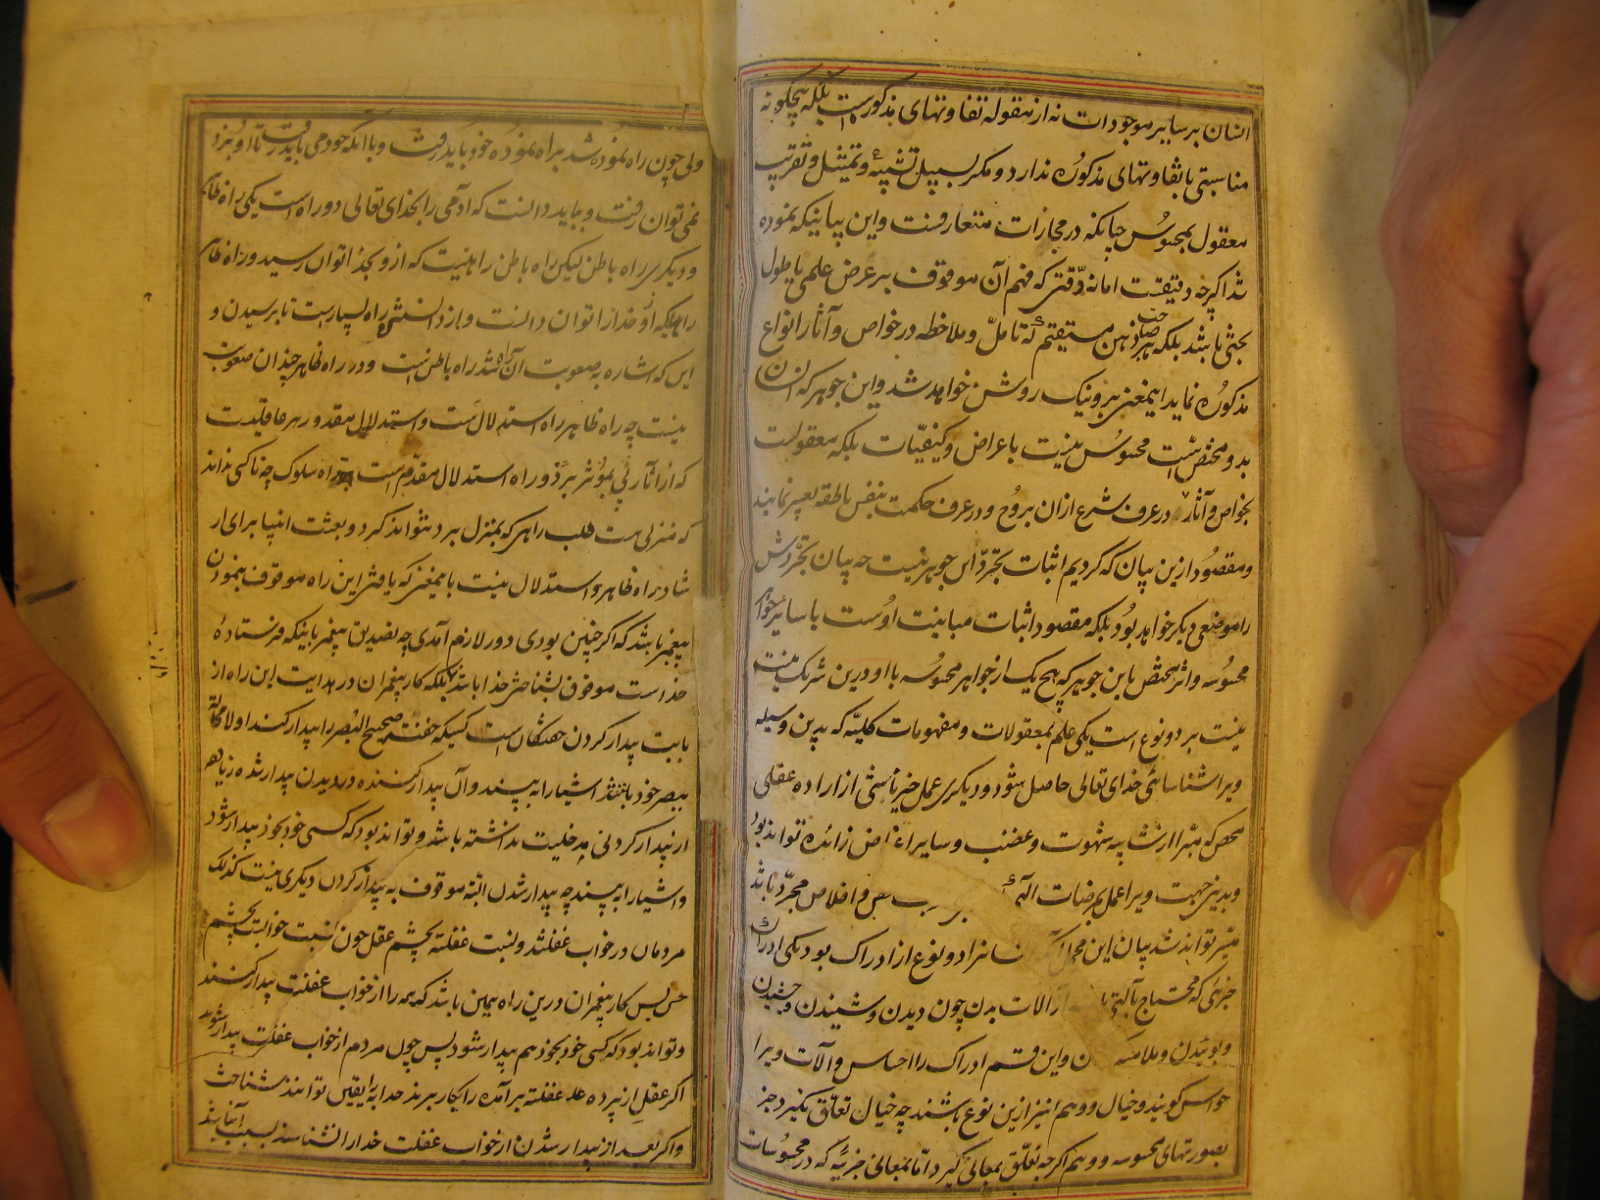 انسان بر سایر موجودات نه از مقوله تفاوتهای مذکورست بلکه هیچگونه
مناسبتی با تفاوتهای مذکوره ندارد و مکر بسبیل تشبیه و تمثیل و تقریب
معقول بمحسوس چنانکه در مجازات متعارفست و این بیانیکه نموده
شد اکرچه دقیقست اما نه دقتی که فهم آن موقوف بر عرض علمی یا طول
بحثی باشد بلکه هر صاحب ذهن مستقیم که تامل و ملاحظه در خواص و آثار انواع
مذکوره نماید اینمعنی برو نیک روشن خواهد شد و این جوهر که انسان
بدو مختص است محسوس نیست با عراض و کیفیات بلکه معقولست
بخواص و آثار و در عرف شرع ازان بروح و در عرف حکمت بنفس ناطقه تعبیر نمایند
و مقصود ازین بیان که کردیم اثبات تجرد این جوهر نیست چه بیان تجردش
را موضعی دیکر خواهد بود بلکه مقصود اثبات مباینت اوست با سایر جواهر
محسوسه و اثر مختص باین جوهر که هیچ یک از جواهر محسوسه با او درین شریک نیست
نیست بر دو نوع است یکی علم بمعقولات و مفهومات کلیه که بدین وسیله
ویرا شناسائی خدای تعالی حاصل شود و دیکری عمل خیر ناشی از اراده عقلی
محض که مبرا از شایبه شهوت و غضب و سایر اغراض زائده تواند بود
و بدین جهت ویرا عمل بمرضات الهی و اخلاص مجرد باشد
میسر تواند شد بیان این مجمل آنکه انسانرا دو نوع از ادراک بود یکی ادراک
جزئی که محتاج بآلتی از الات بدن چون دیدن و شنیدن و چشیدن
و بوئیدن و ملامسه و این قسم ادراک را احساس و آلات ویرا
حواس کویند و خیال و وهم نیز ازین نوع باشند چه خیال تعلق نکیرد جز
بصورتهای محسوسه و وهم اکرچه تعلق بمعانی کیرد اما بمعانی جزئیه که در محسوسات
ولی چون راه نموده شد بر اه نموده خود باید رفت و با آنکه خود می باید رفت تا او نبرد
نمی توان رفت و بباید دانست که آدمی را بخدای تعالی دو راه است یکی راه ظاهر
و دیکری راه باطن لیکن راه باطن راهیست که ازو بخدا توان رسید و راه ظاهر
راهیکه ازو خدا را توان دانست و از دانستن راه بسیارست تا برسیدن و
این که اشاره به صعوبت آن راه شد راه باطن است و در راه ظاهر چندان صعوبت
نیست چه راه ظاهر راه استدلال است و استدلال مقدور هر عاقلیست
که از اثار پی بموثر برد و راه استدلال مقدم است بر راه سلوک چه تا کسی نداند
که منزلی هست طلب راهی که بمنزل برد نتواند کرد و بعثت انبیا برای ار
شاد براه ظاهر و استدلال نیست باینمعنی که یافتن این راه موقوف بنمودن
پیغمبر باشد که اکر چنین بودی دور لازم آمدی چه تصدیق پیغمبر باینکه فرستاده
خداست موقوف بشناختن خدا باشد بلکه کار پیغمبران در هدایت این راه از
بابت بیدار کردن خفتکان است کسیکه خفته صحیح البصر را بیدار کند او لا محاله
ببصر خود باشد اشیا را به بیند و آن بیدار کننده در دیدن بیدار شده زیاده
از بیدار کردنی مدخلیت نداشته باشد و تواند بود که کسی خود بخود بیدار شود
و اشیا را به بیند چه بیدار شدن البته موقوف به بیدار کردن دیکری نیست کذلک
مردمان در خواب غفلتند و نسبت غفلت بچشم عقل چون نسبت خوابست بچشم
حس پس کار پیغمبران درین راه همین باشد که همه را از خواب غفلت بیدار کنند
و تواند بود که کسی خود بخود هم بیدار شود پس چون مردم از خواب غفلت بیدار شوند
اکر عقل از پرده غفلت برآمده را بکار برند خدا را به یقین توانند شناخت
و اکر بعد از بیدار شدن از خواب غفلت خدا را نشناسند بسبب آن باشد